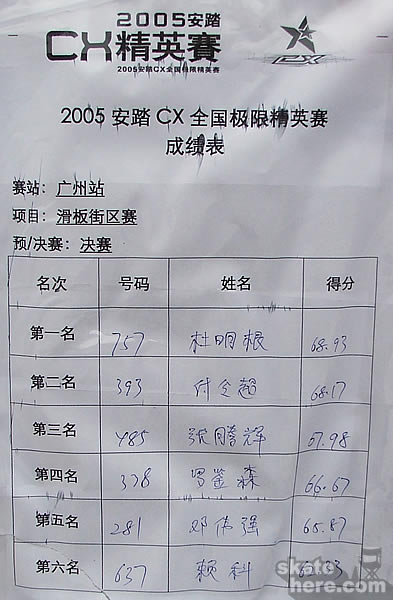 2005安踏
CX精英赛
2005安踏CX全国极限精英赛
CX
2005 安踏 CX 全国极限精英赛
成绩表
赛站：广州站
项目：滑板街区赛
预/决赛：决赛
名次 号码 姓名 得分
第一名 757 杜明根 68.93
第二名 393 付仝超 68.17
第三名 485 张腾辉 67.98
第四名 378 森 66.67
第五名 281 邓伟强 65.87
第六名 637 赖科
skate
here.com